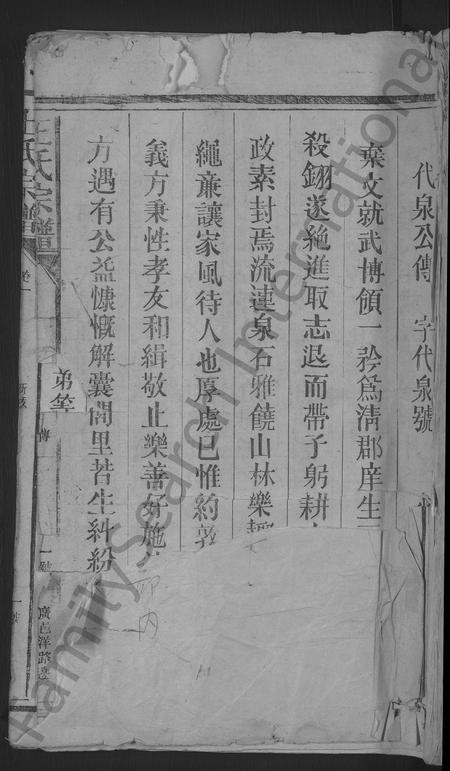 代泉公傳 字代泉號
棄文就武博領一衿為清郡庠生
殺鉶遂絶進取志退而帶子躬耕
政素封焉流連泉石雅饒山林樂趣
繩亷讓家風待人也厚處已惟約敦
義方秉性孝友和緝敬止樂善好施
方遇有公益慷慨解囊閭里若生糾紛
王氏宗譜
弟等
傳
廣邑洋路邊
內
FamilySearch International